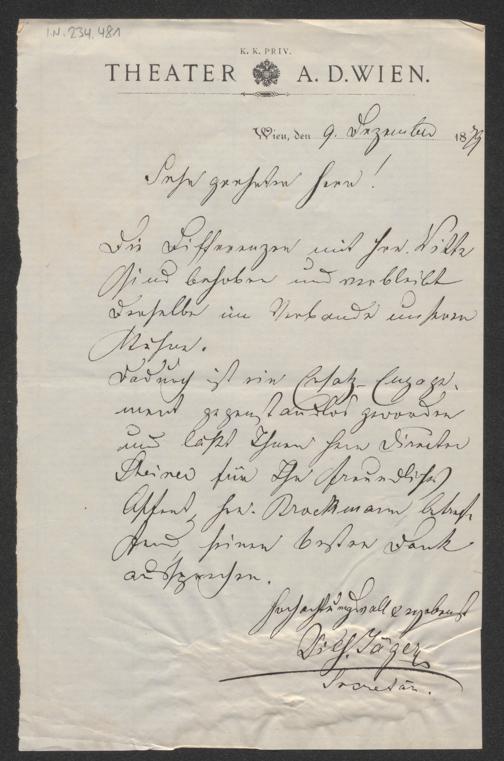 I.N. 234.481
K. K. PRIV.
THEATER A. D. WIEN.
Wien, den 9. Dezember 1879
Sehr geehrter Herr!
Die Differenzen mit Hrn. Witte
sind behoben und verbleibt
derselbe im Verbande unserer
Bühne.
Dadurch ist ein Ersatz-Engage-
ment gegenstandlos geworden
und läßt Ihnen Herr Director
Steiner für Ihr freundliches
Offert, Hrn. Brockmann betref-
fend, seinen besten Dank
aussprechen.
Hochachtungsvoll & ergebenst
Jäger
Secretär.